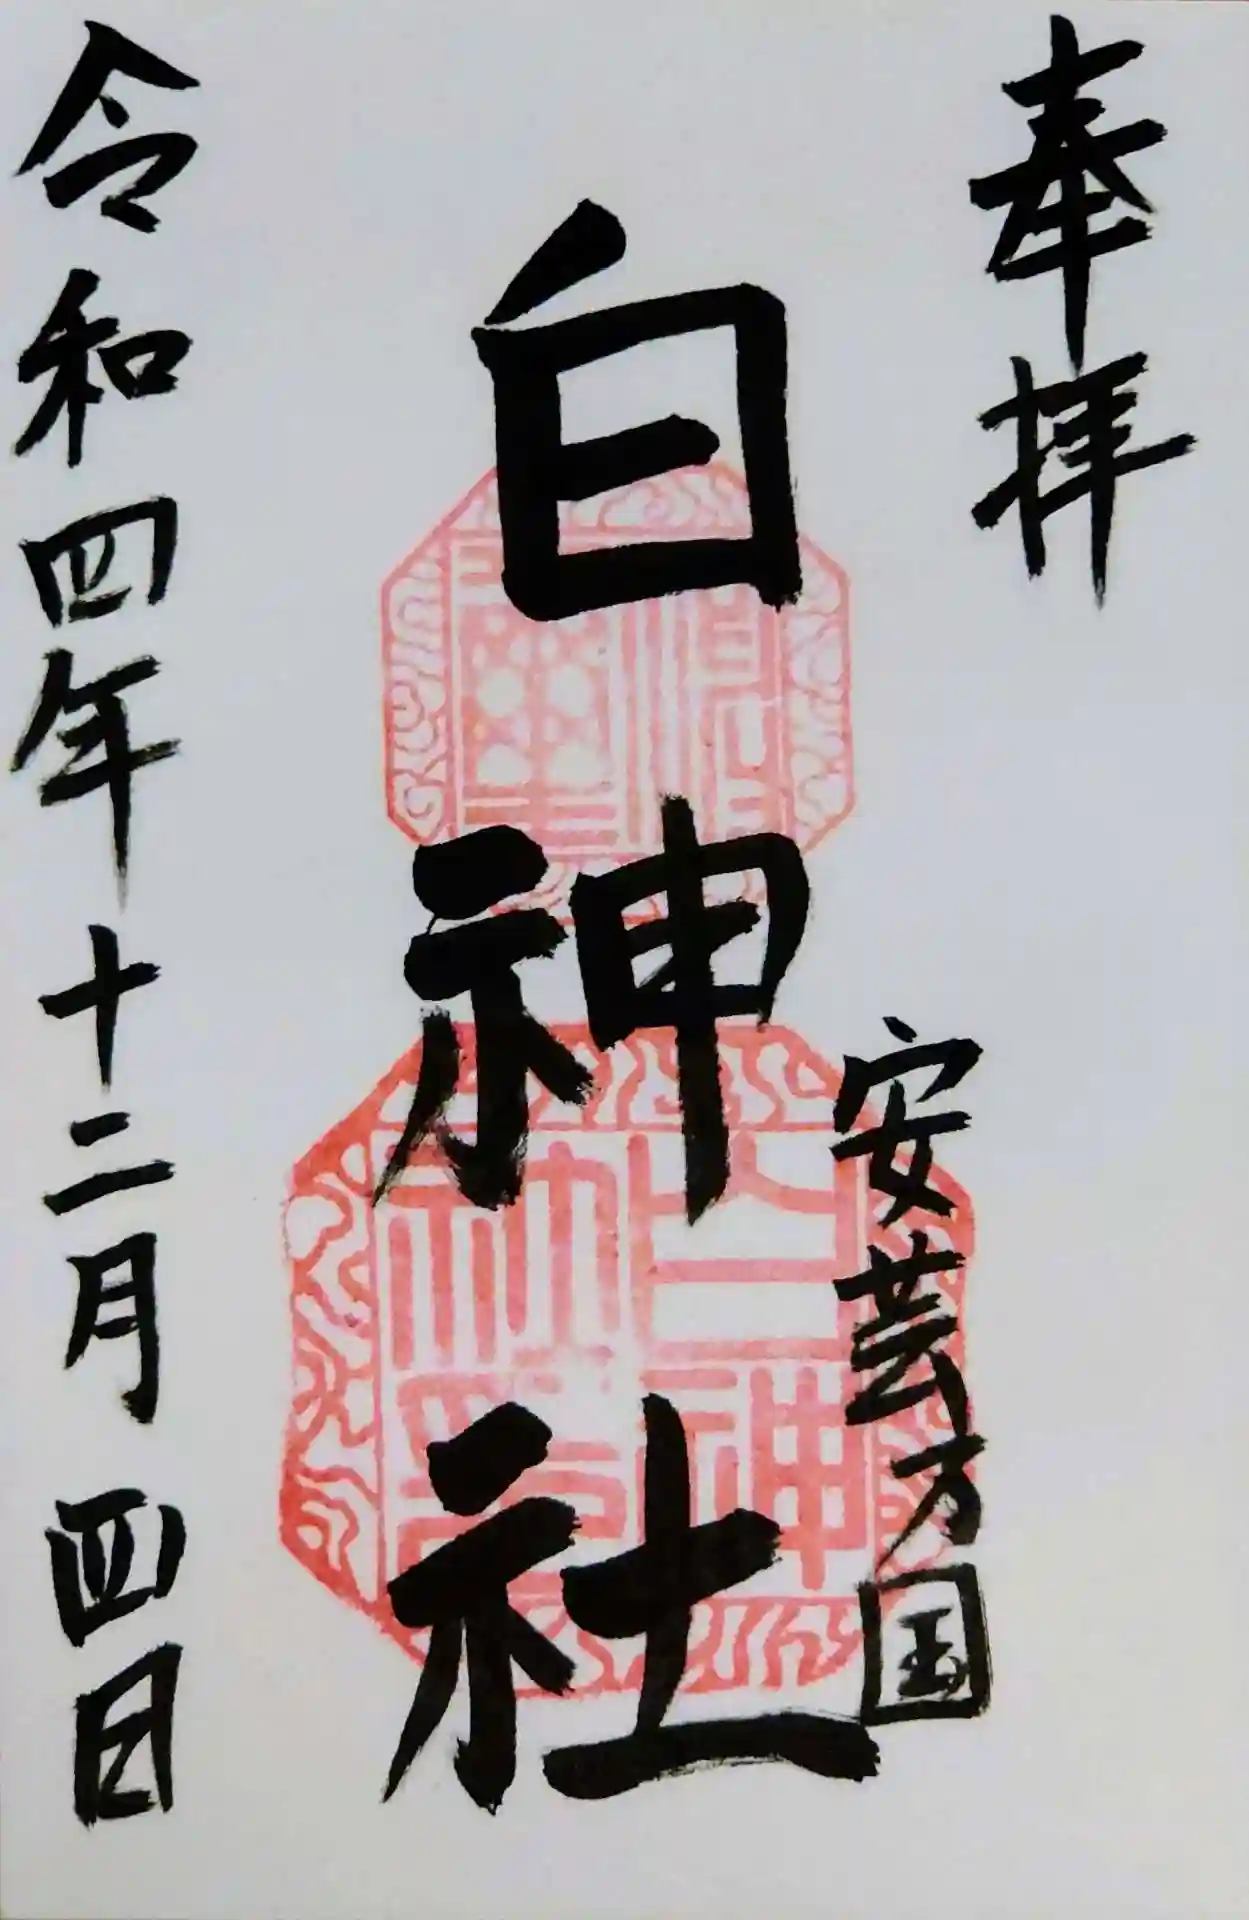 奉拝
安芸乃国
白神社
令和四年十二月四日
白神
社印